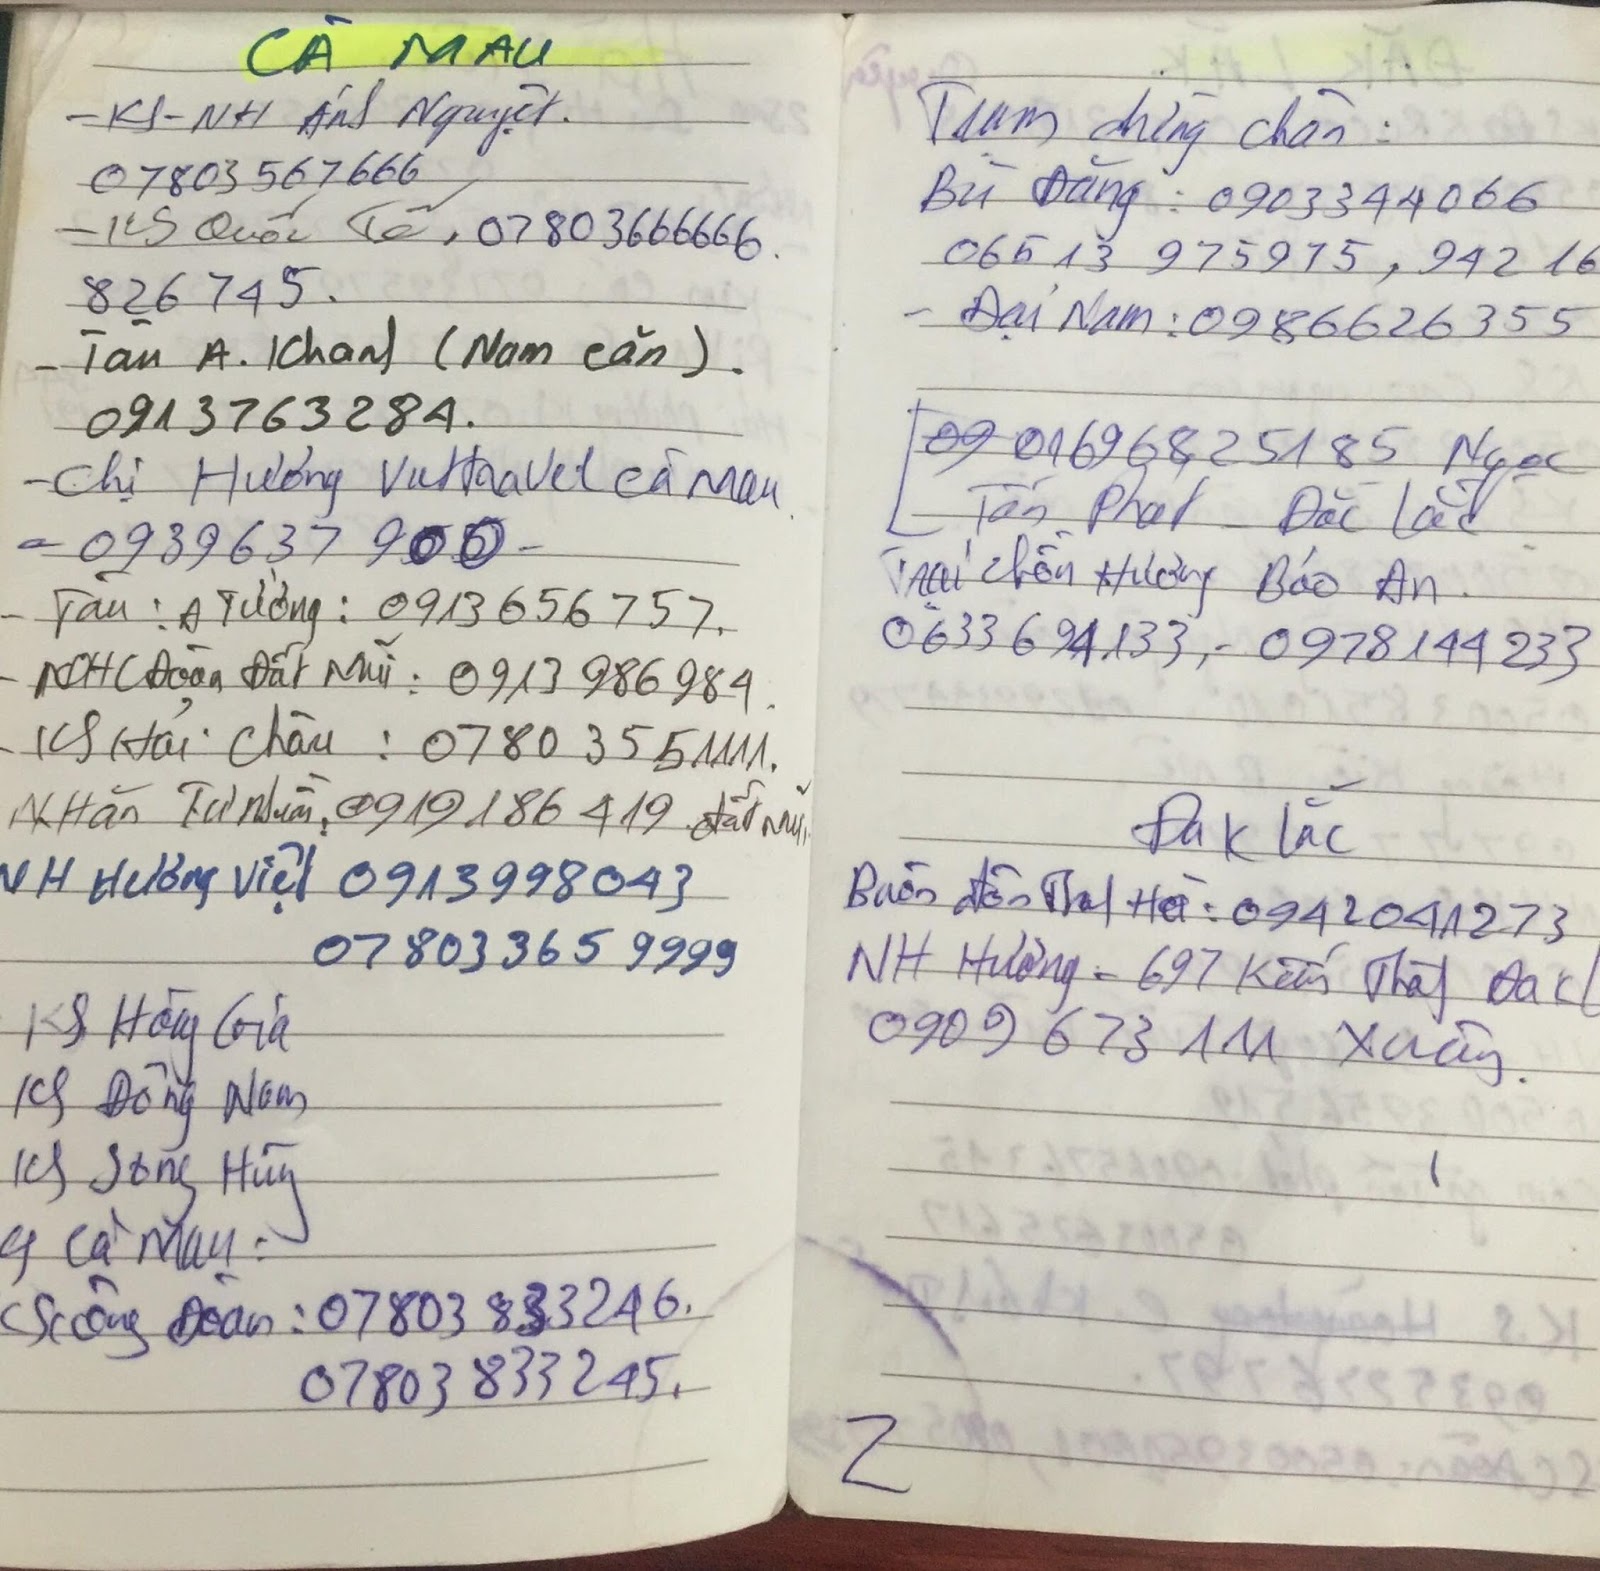 CÀ MAU
- KS - NH Ánh Nguyệt.
07803567666
- KS Quốc Tế, 07803666666.
826745.
- Tàu A. Khanh (Năm căn).
0913763284.
- Chị Hương Viettravel Cà Mau.
- 0939637 900 -
- Tàu : A Tưởng : 0913656757.
- NHCĐoàn Đất Mũi : 0913 986984.
- KS Hải Châu : 0780 3551111.
0919186419 đất mũi.
NH Hương Việt 0913998043
07803365 9999
KS Hồng Gia
KS Đông Nam
KS Song Hùng
Cà Mau :
KS Công Đoàn : 07803 833246.
07803 833245.
Trạm dừng chân :
Bù Đăng : 0903344066
06513 975975, 94216
- Đại Nam : 0986626355
09 01696825185 Ngọc
Tấn Phát - Đắc Lắc
Trại chồn Hương Bảo An.
0633 694.133, - 0978144233
Đak lắc
Buôn đôn Hà : 0942041273
NH Hương - 697 Đak
0909 673 111 Xuân.
2